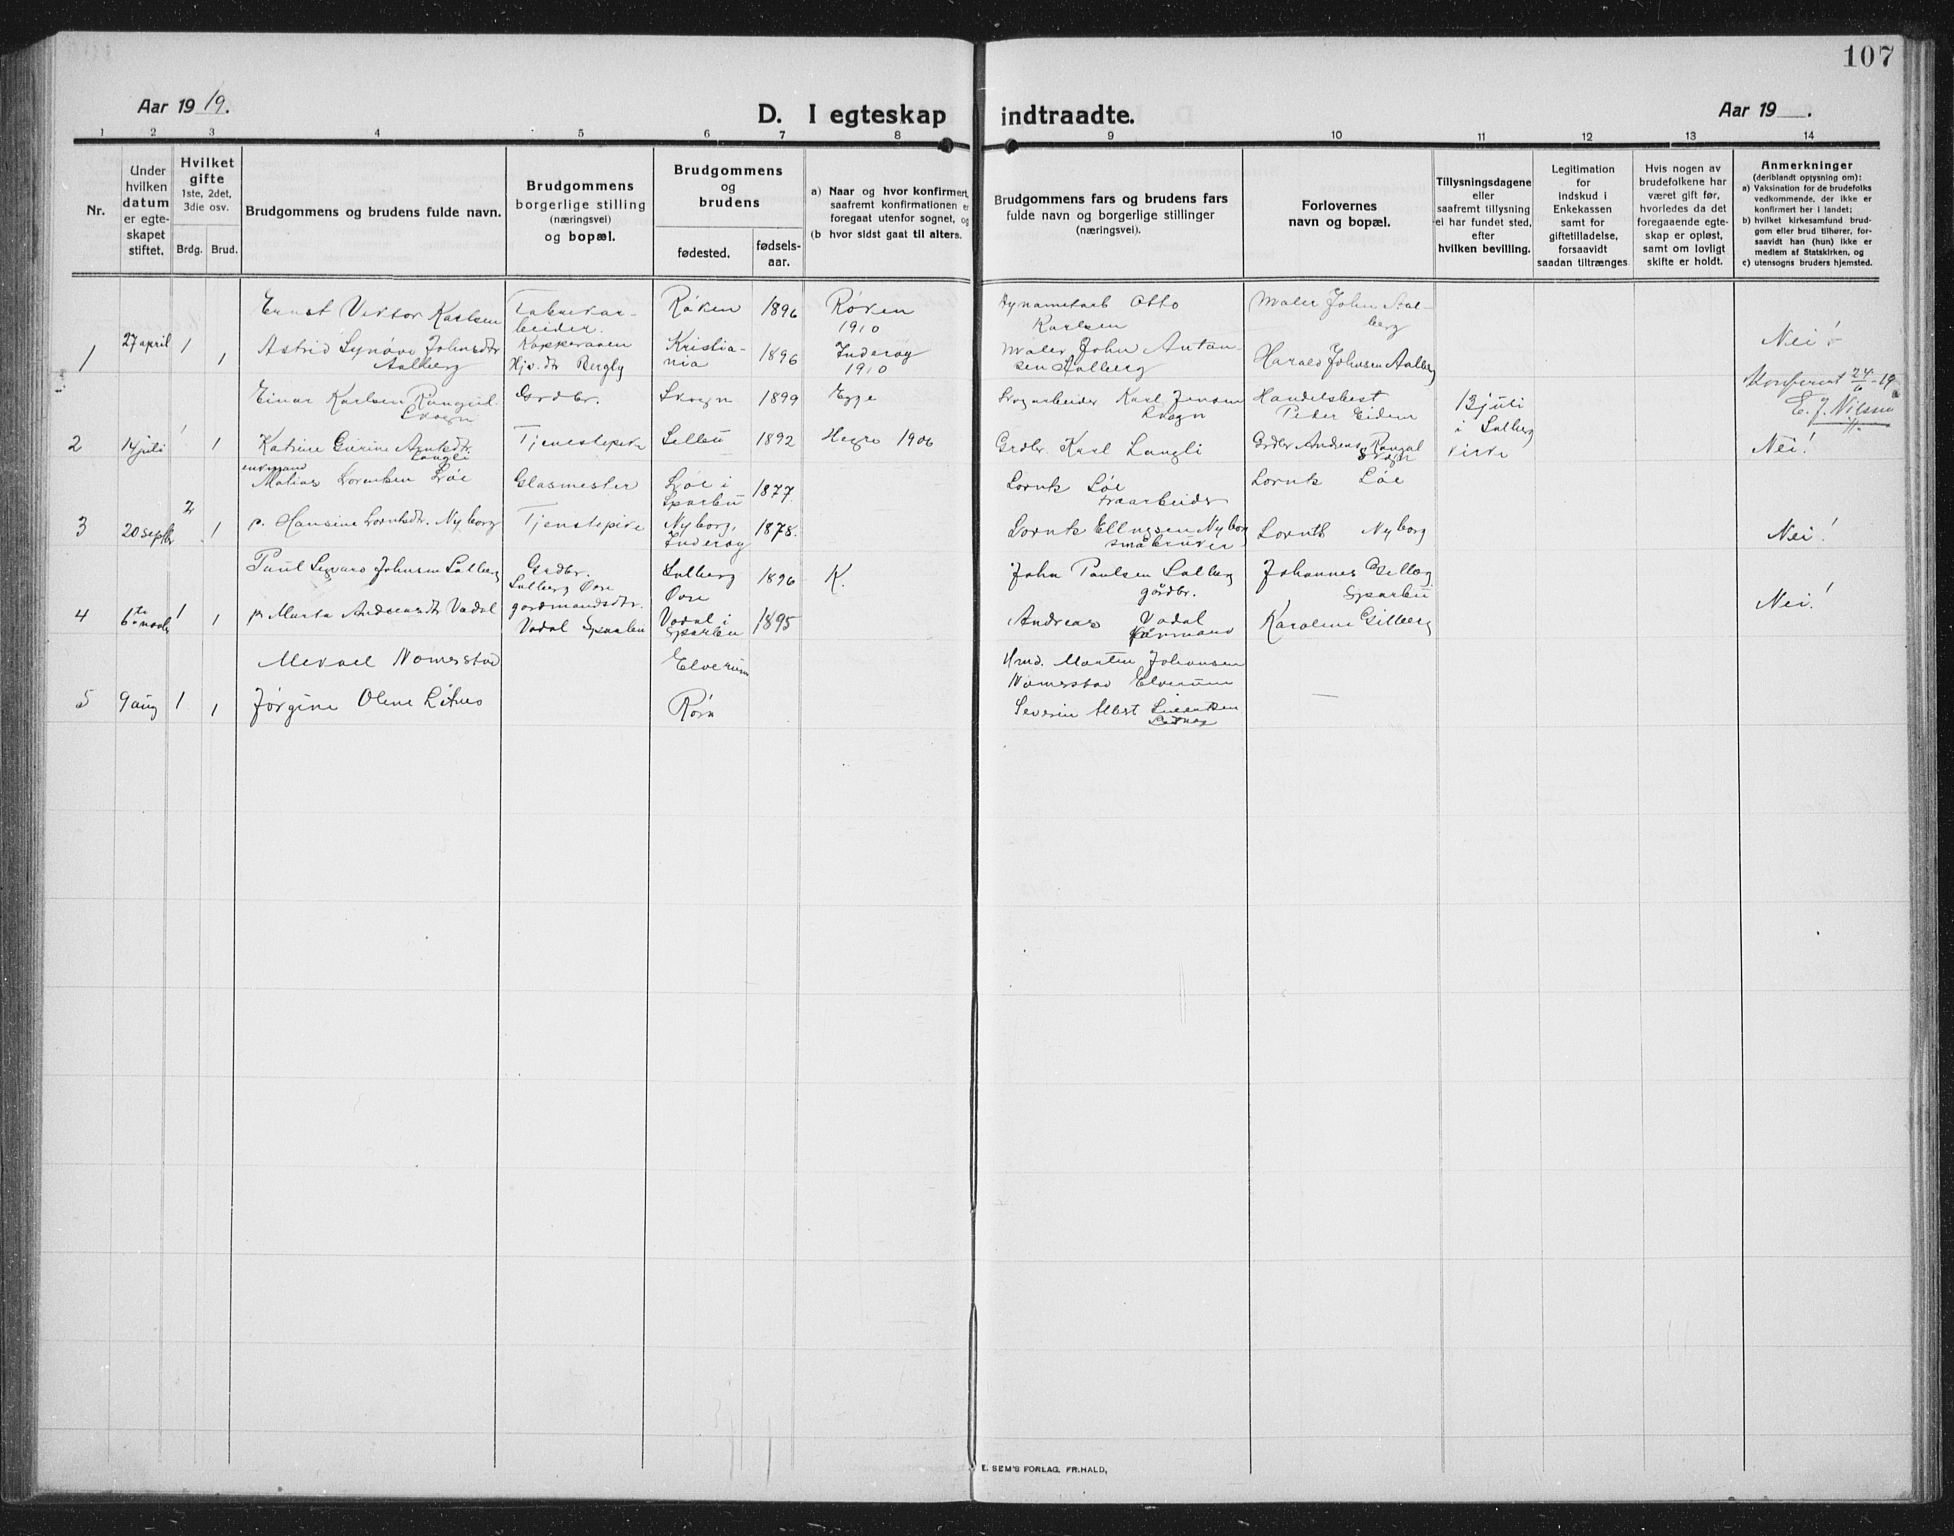 107
Aar 19 19.
D. I egteskap indtraadte.
Aar 19 .
1 2 3 4 5 6 7 8 9 10 11 12 13 14
Nr.
Under hvilken datum er egteskapet stiftet.
Hvilket gifte
1ste, 2det, 3die osv.
Brdg. Brud.
Brudgommens og brudens fulde navn.
Brudgommens borgerlige stilling (næringsvei) og bopæl.
Brudgommens og brudens
fødested. fødselsaar.
a) Naar og hvor konfirmert,
saafremt konfirmationen er
foregaat utenfor sognet, og
(b hvor sidst gaat til alters.
Brudgommens fars og brudens fars
fulde navn og borgerlige stillinger
(næringsvei).
Forlovernes
navn og bopæl.
Tillysningsdagene
eller
saafremt tillysning
ei har fundet sted,
efter
hvilken bevilling.
Legitimation
for
indskud i
Enkekassen
samt for
giftetilladelse,
forsaavidt
saadan tiltrænges
Hvis nogen av
brudefolkene har
været gift før,
hvorledes da det
foregaaende egteskap er opløst,
samt om lovligt
skifte er holdt.
Anmerkninger
(deriblandt optysning om):
a) Vaksination for de brudefolks
vedkommende, der ikke er
konfirmert her i landet;
b) hvilket kirkesamfund brudgom eller brud tilhører, forsaavidt han (hun) ikke er
medlem af Statskirken, og
c) utensogns bruders hjemsted.
1 27 april 1 1
Ernst Viktor Karlsen
Astrid Synøve Johnsdtr
Aalberg
Fabrikarbeider.
Hjv. dtr Bergly
Røken 1896
Kristiania 1896
Røken
1910
Inderøy
1910
Otto
Karlsen
Maler John Antonsen Aalberg
Maler John Aalberg
Harald Johnsen Aalberg
Nei!
2 14 juli 1 1
Einar Karlsen
Skogn
Katrine
Langli
Grdbr.
Tjenestepike
Skogn 1899
1892
Egge
Hegre 1906
Skogarbeider Karl Jensen
Skogn
Grdbr. Karl Langli
Peder Eidem
Grdbr Andreas
Skogn
13 juli
i Salberg
kirke
24/6-19
E. J. Nilssen
Nei!
3 20 septbr 2 1
enkmand
Matias Lorntsen Løe
p. Hansine Lorntsdtr. Nyborg
Glasmester
Tjenstepike
Løe i
Sparbu 1877
Nyborg,
Inderøy 1878.
Lornts Løe
Lornts Ellingsen Nyborg
småbruker
Lornts Løe
Lornts Nyborg
Nei!
4 6te novbr 1 1
Paul Sigvard Johnsen Salberg
p. Marta Andreasdtr Vadal
Grdbr.
Salberg Øvre
gårdmandsdtr.
Vadal Sparbu
Salberg
Øvre 1896
Vadal i
Sparbu 1895
K.
John Paulsen Salberg
gårdbr.
Andreas Vadal
Johannes
Sparbu
Karoline Gilberg
Nei!
5 9 aug 1 1
Mikael Nomerstad
Jørgine Oline Litnes
Elverum
Rørn
Martin Johansen
Nomerstad Elverum
Severin Albert
—
E. SEM'S FORLAG, FR.HALD,